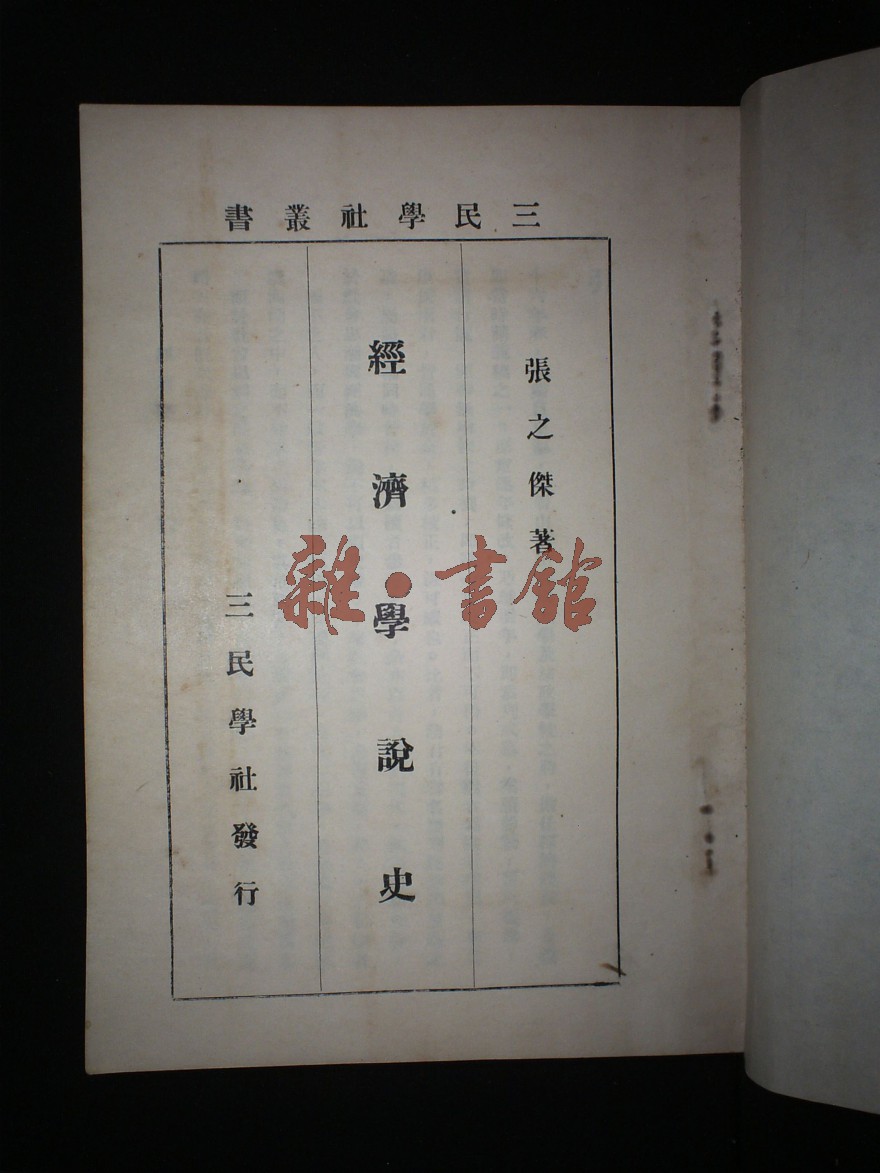 三民學社叢書
張之傑著
經濟學說史
三民學社發行
雜·書館